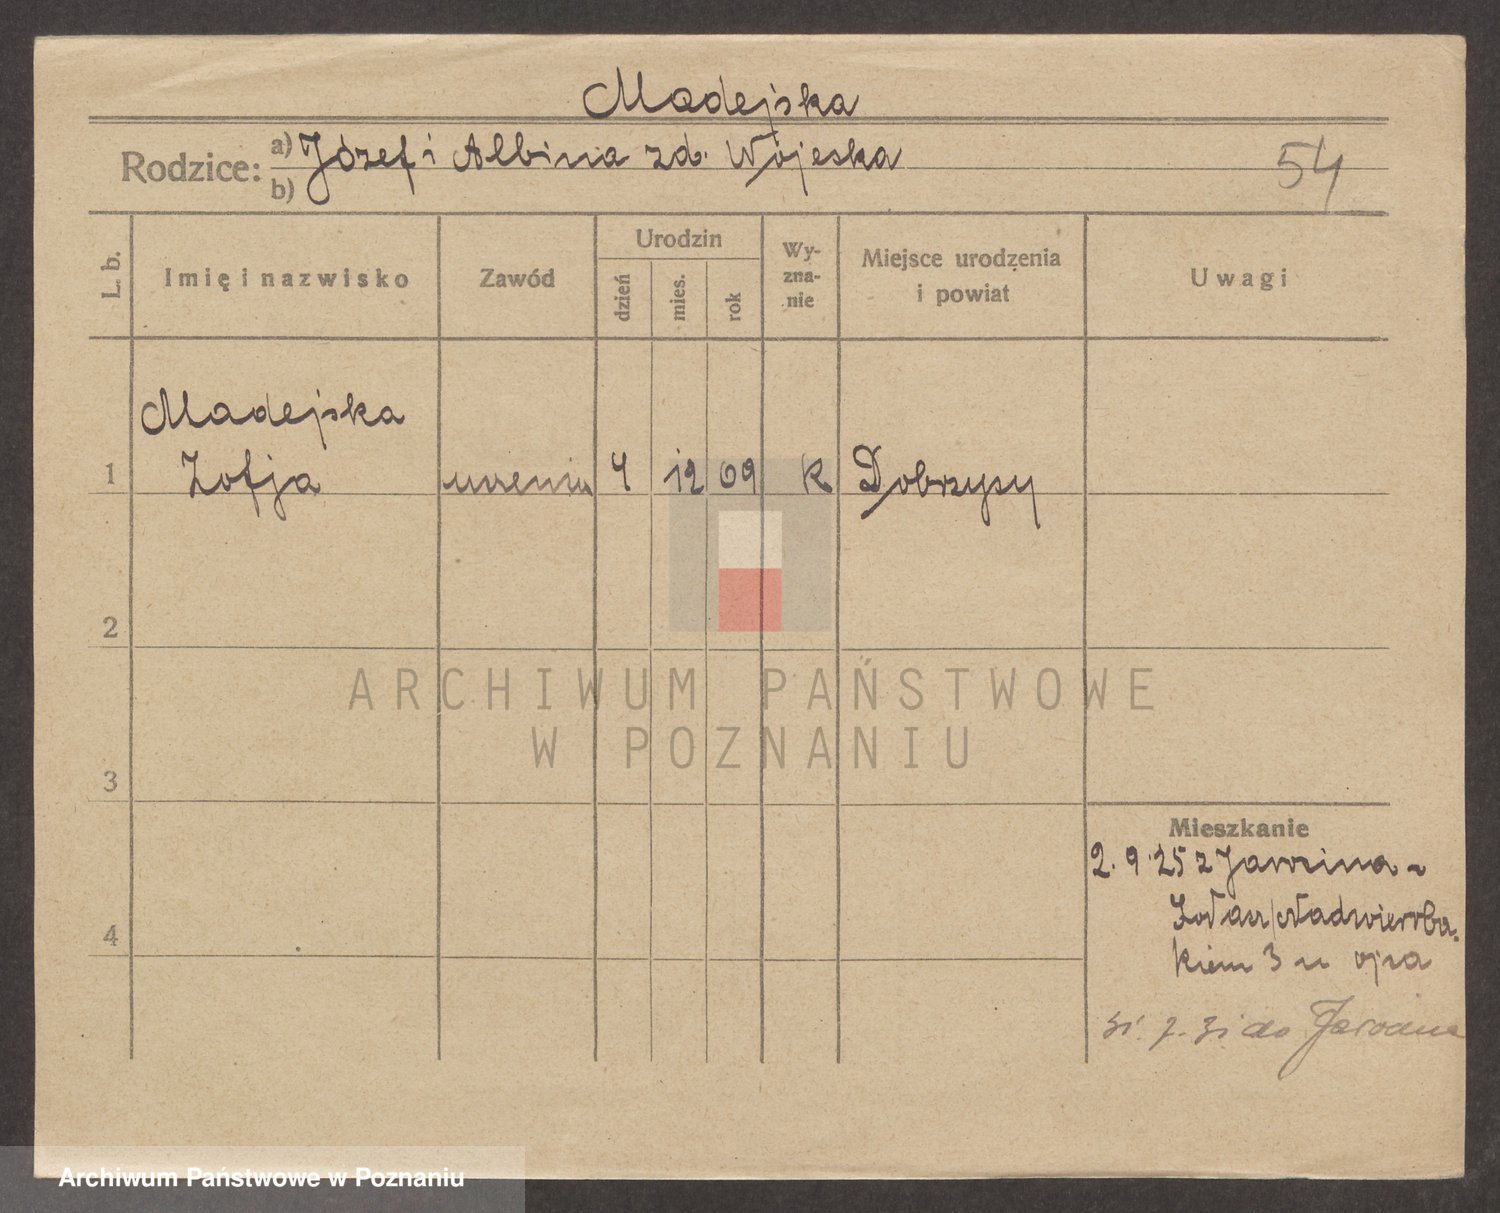 Madejska
Rodzice: a) Józef i Albina zd. Wójeska
b)
54
L. b.
Imię i nazwisko
Zawód
Urodzin
dzień
mies.
rok
Wy-
zna-
nie
Miejsce urodzenia
i powiat
Uwagi
Madejska
1 Zofja uczenic 4 12 09 k Dobrzycy
2
3
4
Mieszkanie
2. 9. 25 z Jarocina -
kiem 3 u ojca
31. 7. 31 do Jarocina
ARCHIWUM PAŃSTWOWE
W POZNANIU
Archiwum Państwowe w Poznaniu